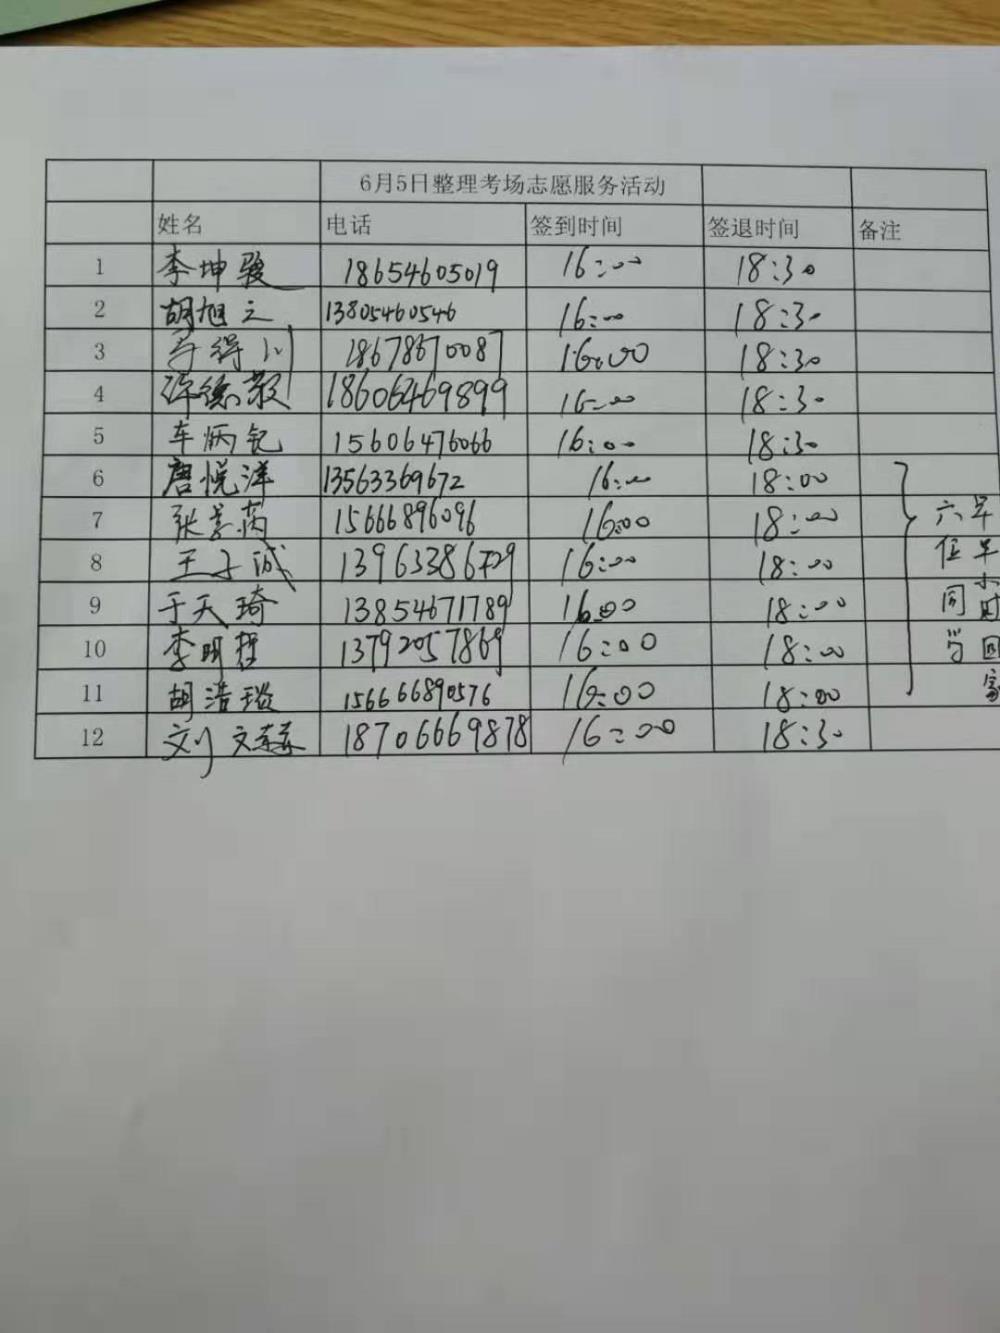 6月5日整理考场志愿服务活动
姓名 电话 签到时间 签退时间 备注
1 李坤骏 18654605019 16:00 18:30
2 胡旭之 13805460546 16:00 18:30
3 得川 18678670087 16:00 18:30
4 许德 18606469899 16:00 18:30
5 车炳 15606476066 16:00 18:30
6 唐悦洋 13563369672 16:00 18:00
7 张 15666896096 16:00 18:00
8 王子诚 13963386729 16:00 18:00
9 于天琦 13854671789 16:00 18:00
10 李明哲 13792057869 16:00 18:00
11 胡浩 156666890576 16:00 18:00
12 刘文 18706669878 16:00 18:30
六位同学
早半小时回家